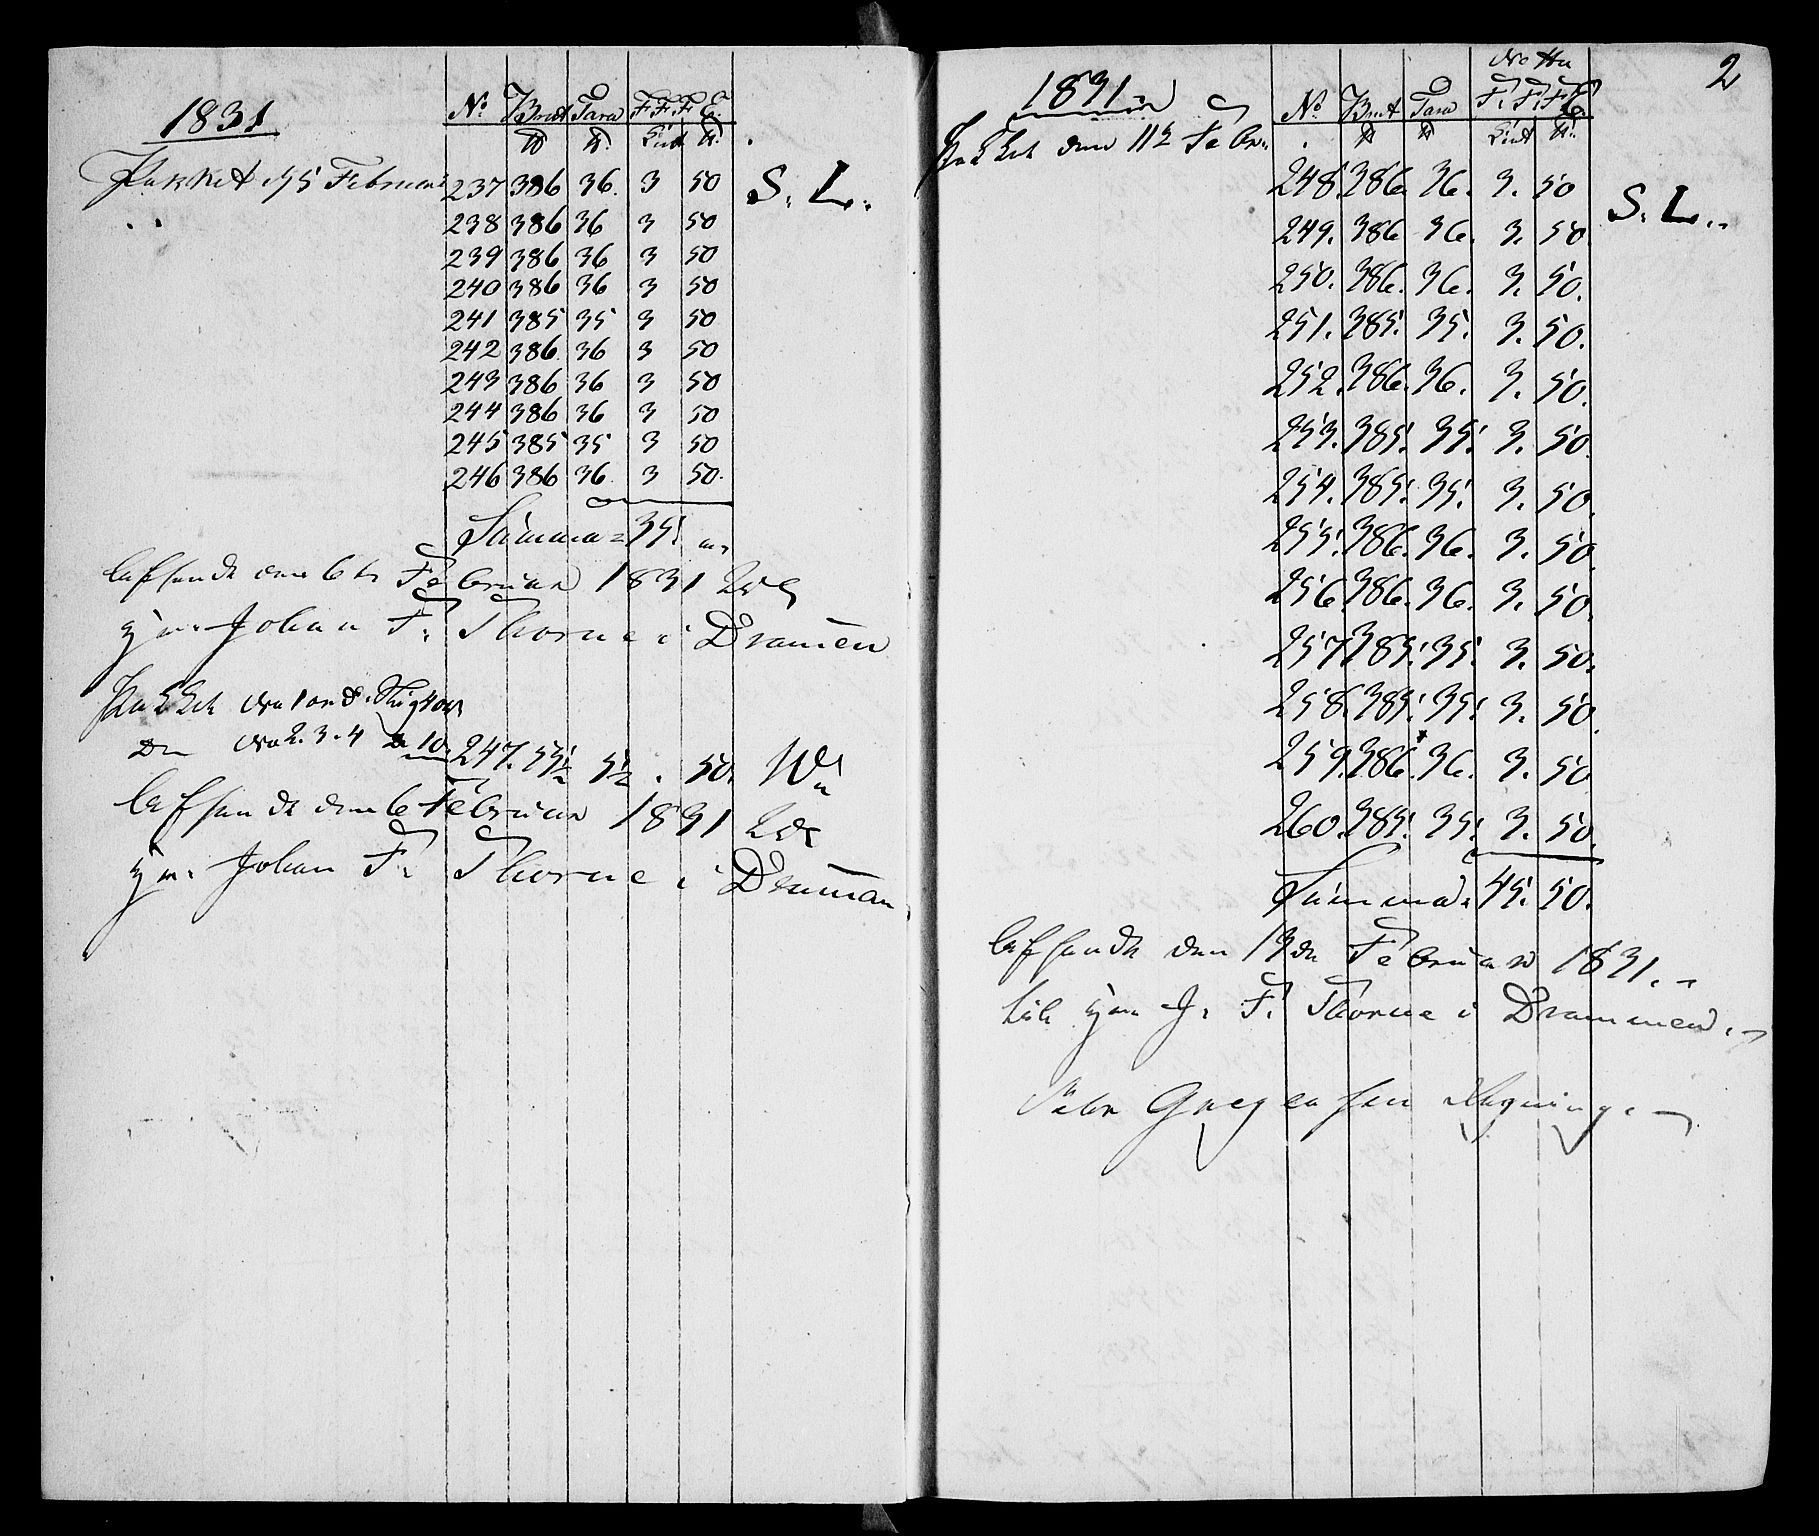 1831
No Brut Tara F F F E
Pakket d 5 Februar 237 386 36. 3 50 S. L.
238 386 36 3 50
239 386 36 3 50
240 386 36 3 50
241 385 35 3 50
242 386. 36 3 50
243 386 36 3 50
244 386 36 3 50
245 385 35 3 50
246 386 36 3 50.
Summa = 35
Afsendt den 6te Februar 1831
Johan F. Thorne i Dramen
Pakket
2. 3. 4 10. 247. 55½ 5½ . 50.
Afsendt den 6 Februar 1831
Johan F. Thorne i Dramen
2
1831
Netto
No Brut Tara F. F. F E
Pakket den 11te Febr.
248. 386. 36. 3. 50 S. L.
249. 386 36. 3. 50
250. 386. 36. 3. 50.
251. 385. 35. 3. 50.
252. 386. 36. 3. 50.
253. 385. 35. 3. 50.
254. 385. 35. 3. 50.
255. 386. 36. 3. 50.
256. 386. 36. 3. 50.
257 385. 35. 3. 50.
258. 385. 35. 3. 50.
259. 386. 36. 3. 50
260. 385. 35. 3. 50.
Summa. 45. 50.
Afsendt den 13de Februar 1831.
til J. F. Thorne i Drammen.
Gregersen Regning.